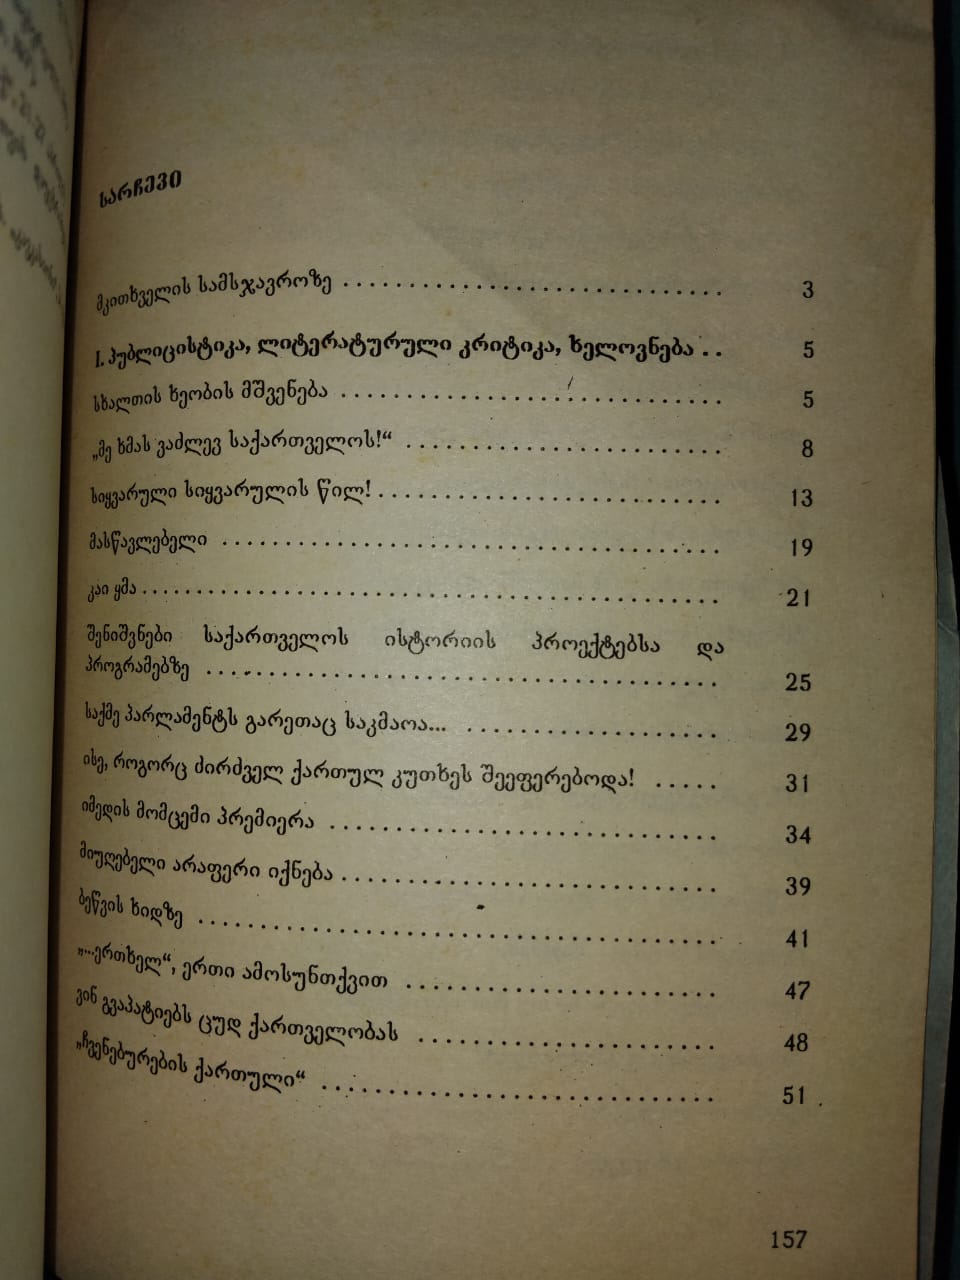 სარჩევი
მკითხველის სამსჯავროზე . . . . . . . . . . . . . . . . . . . . . . . . . . . . . 3
I. პუბლიცისტიკა, ლიტერატურული კრიტიკა, ხელოვნება . . 5
სხალთის ხეობის მშვენება . . . . . . . . . . . . . . . . . . . . . . . . . . . . . 5
„მე ხმას ვაძლევ საქართველოს!“ . . . . . . . . . . . . . . . . . . . . . . . . 8
სიყვარული სიყვარულის წილ! . . . . . . . . . . . . . . . . . . . . . . . . . . 13
მასწავლებელი . . . . . . . . . . . . . . . . . . . . . . . . . . . . . . . . . . . . . . 19
კაი ყმა . . . . . . . . . . . . . . . . . . . . . . . . . . . . . . . . . . . . . . . . . . . . 21
შენიშვნები საქართველოს ისტორიის პროექტებსა და
პროგრამებზე . . . . . . . . . . . . . . . . . . . . . . . . . . . . . . . . . . . . . . . 25
საქმე პარლამენტს გარეთაც საკმაოა... . . . . . . . . . . . . . . . . . . . . 29
ისე, როგორც ძირძველ ქართულ კუთხეს შეეფერებოდა! . . . . . 31
იმედის მომცემი პრემიერა . . . . . . . . . . . . . . . . . . . . . . . . . . . . . . 34
მიუღებელი არაფერი იქნება . . . . . . . . . . . . . . . . . . . . . . . . . . . . . 39
ბეწვის ხიდზე . . . . . . . . . . . . . . . . . . . . . . . . . . . . . . . . . . . . . . . . 41
„...ერთხელ“, ერთი ამოსუნთქვით . . . . . . . . . . . . . . . . . . . . . . . . 47
ვინ გვაპატიებს ცუდ ქართველობას . . . . . . . . . . . . . . . . . . . . . . . 48
„ჩვენებურების ქართული“ . . . . . . . . . . . . . . . . . . . . . . . . . . . . . . 51
157